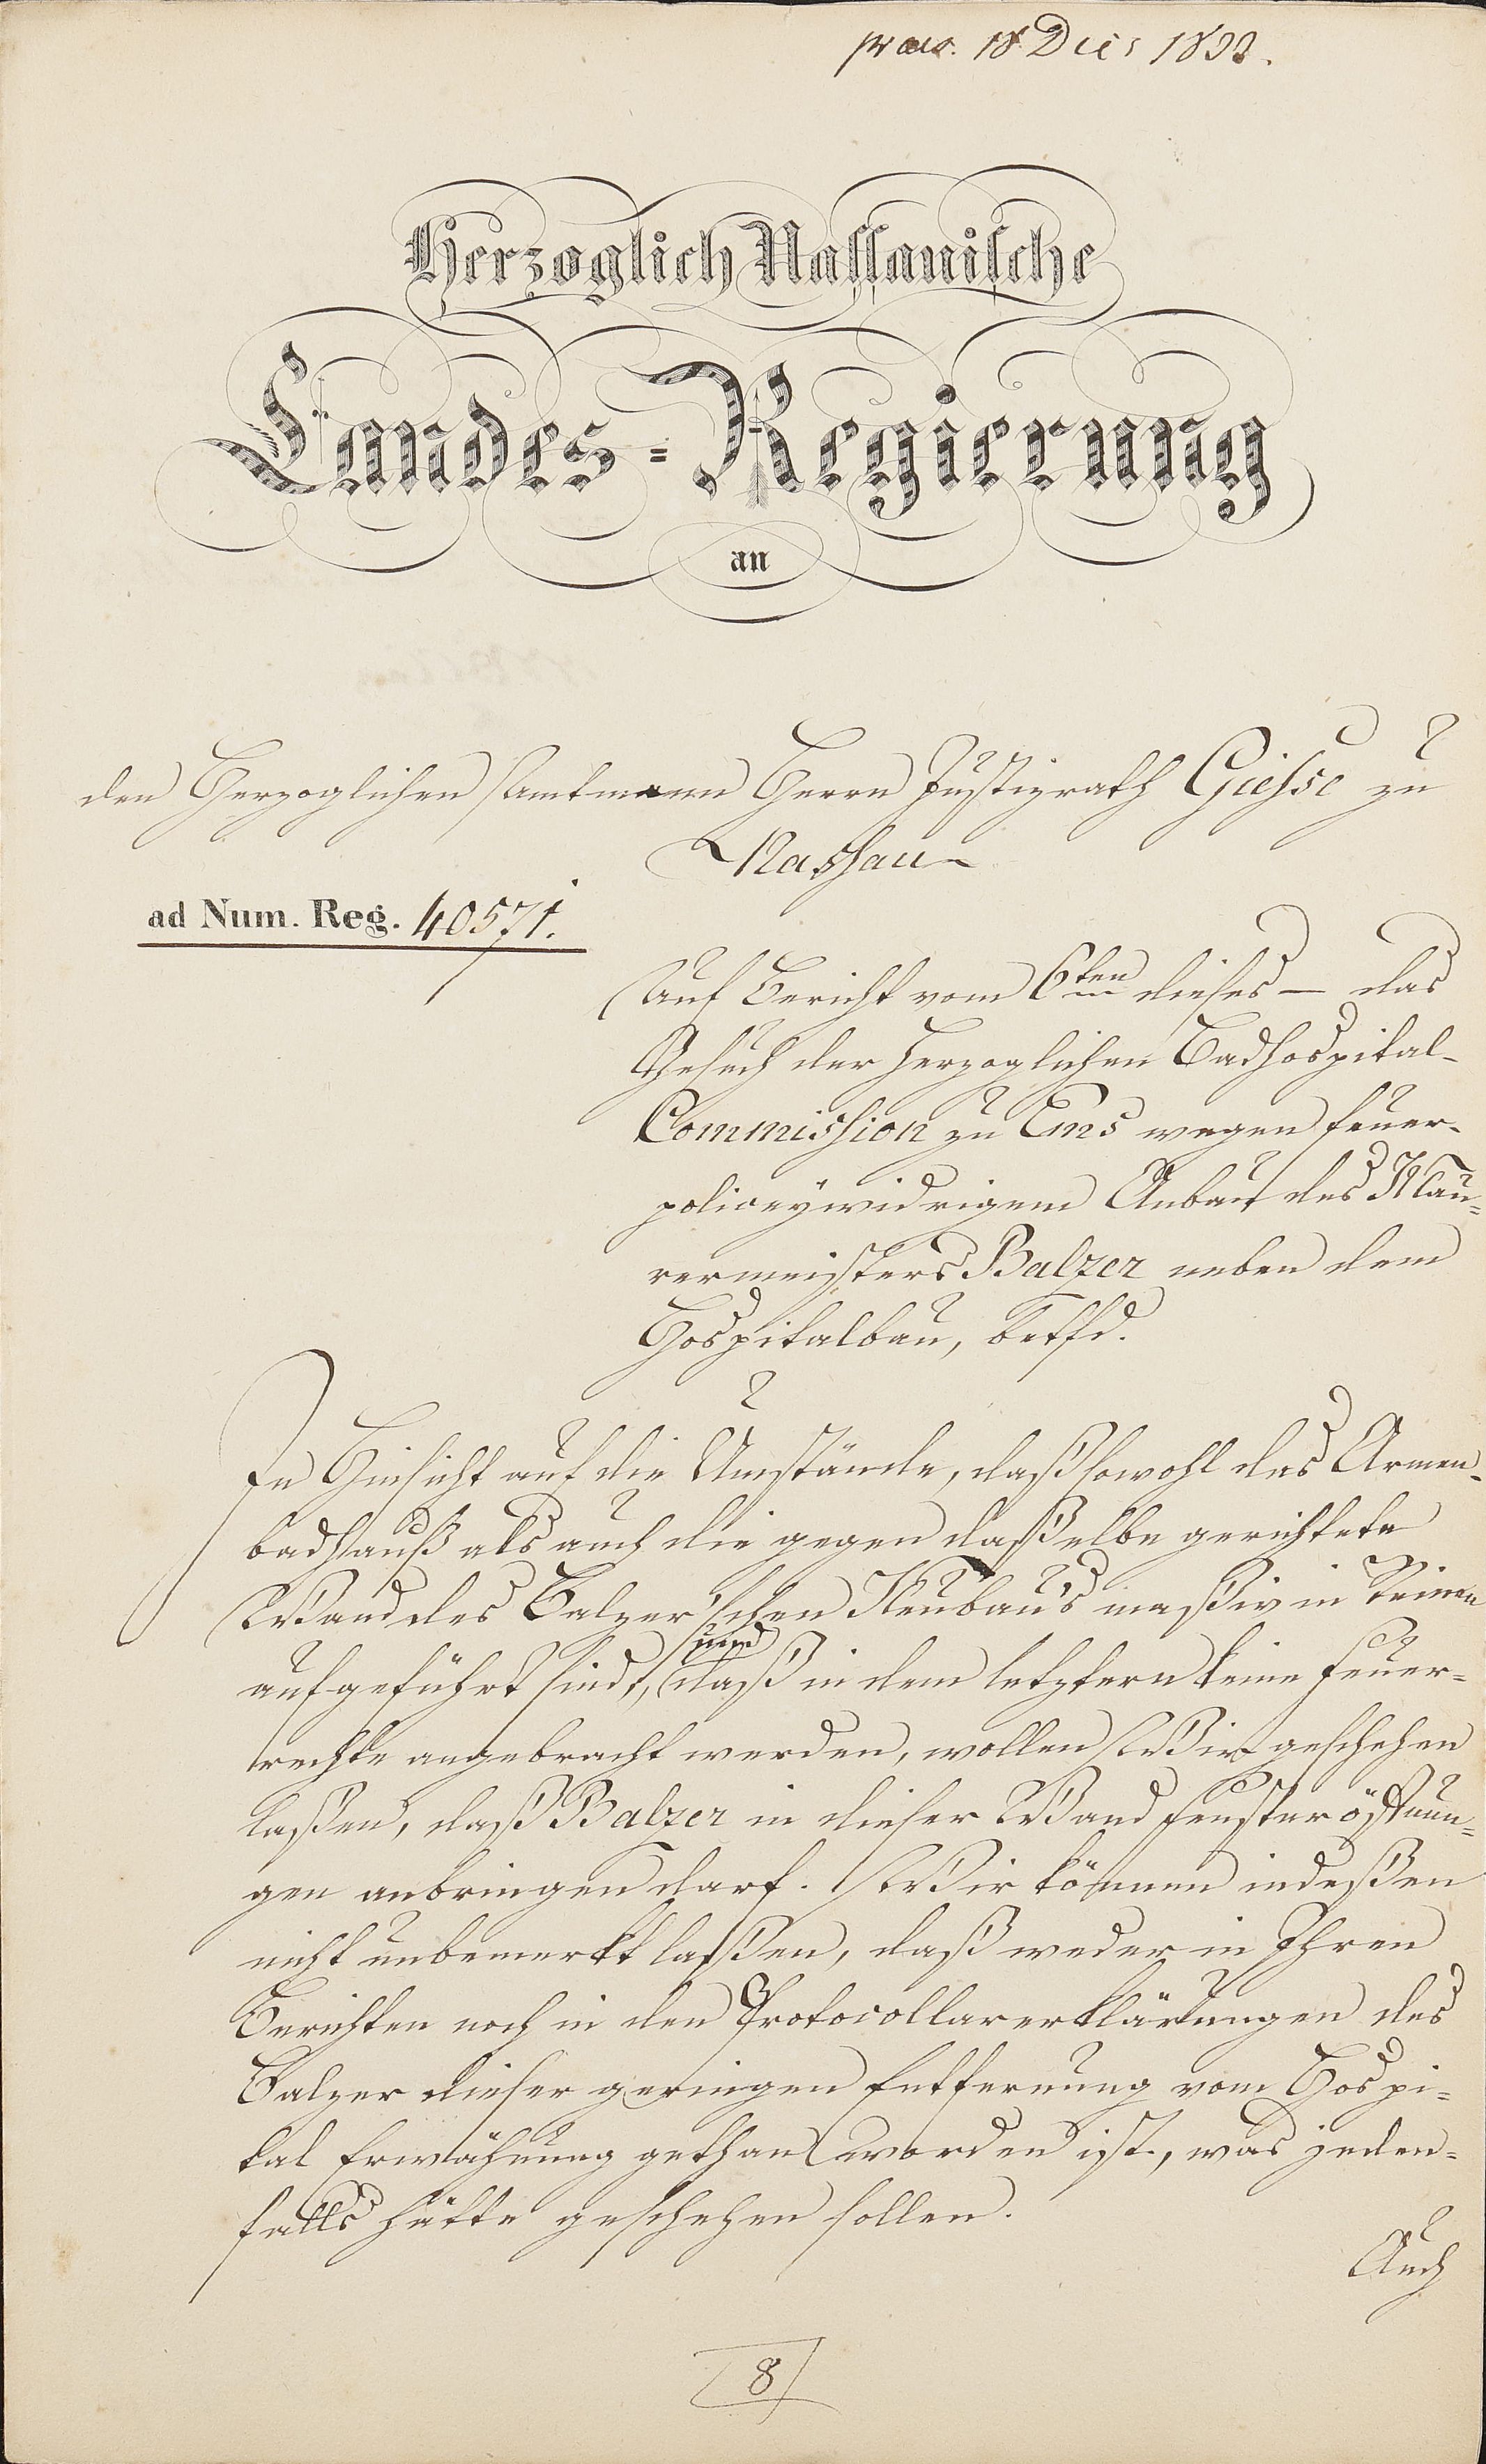 praes. 18 Dec 1822.
Herzoglich Nassauische
Landes-Regierung
an
den Herzoglichen Amtmann Herrn Justizrath Giesse zu
Nassau
ad Num. Reg. 40571.
Auf Bericht vom 6ten dieses – das
Gesuch der Herzoglichen Badhospital-
Commission zu Ems wegen feuer-
policeywidrigem Anbau des Mau-
rermeisters Balzer neben dem
Hospitalbau, betfd.
In Hinsicht auf die Umstände, daß sowohl das Armen-
badhauß als auch die gegen daßelbe gerichtete
Wand des Balzer'schen Neubau's maßiv in Steinen
aufgeführt sind, und daß in dem letztern keine Feuer-
rechte angebracht werden, wollen Wir geschehen
laßen, daß Balzer in dieser Wand Fensteröffnun-
gen anbringen darf. Wir können indeßen
nicht unbemerkt laßen, daß weder in Ihren
Berichten noch in den Protocollarerklärungen des
Balzer dieser geringen Entfernung vom Hospi-
tal Erwähnung gethan worden ist, was jeden-
falls hätte geschehen sollen.
Auch
8